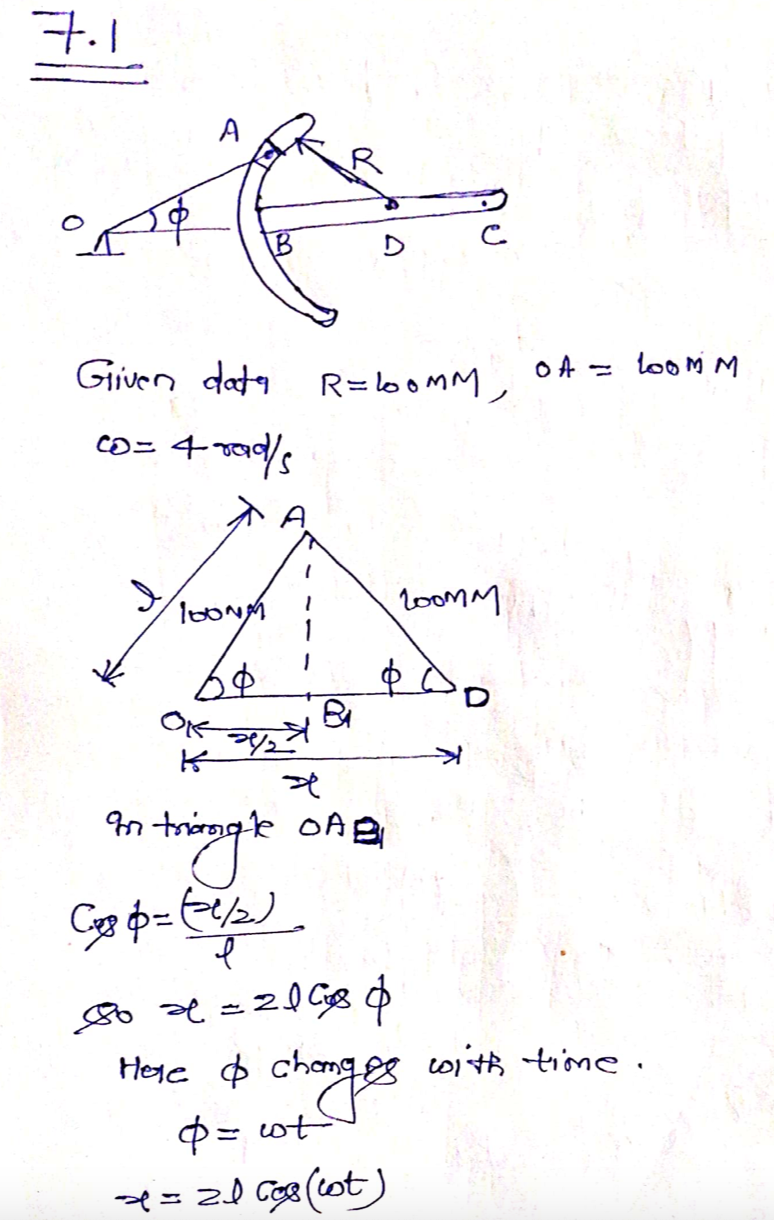 7.1
A
R
O
ϕ
B
D
C
Given data R=100MM, OA = 100MM
ω= 4 rad/s
A
l
100MM
100MM
ϕ
ϕ
D
O
B1
x/2
x
In triangle OAB1
Cos ϕ = (x/2)/l
So x = 2l Cos ϕ
Here ϕ changes with time.
ϕ = ωt
x = 2l Cos(ωt)